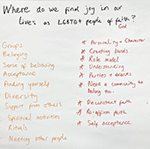 Where do we find joy in our
lives as LGBTQI+ people of faith?
God
Groups
Belonging
Sense of belonging
Acceptance
Finding yourself
Diversity
Support from others
Spiritual activities
Rituals
Meeting other people
* Personality + Character
* Creating bonds
* Role model
* Understanding
* Parties + dances
* Need a community to
belong to.
* Deconstruct faith
* Re-affirm faith
* Self acceptance